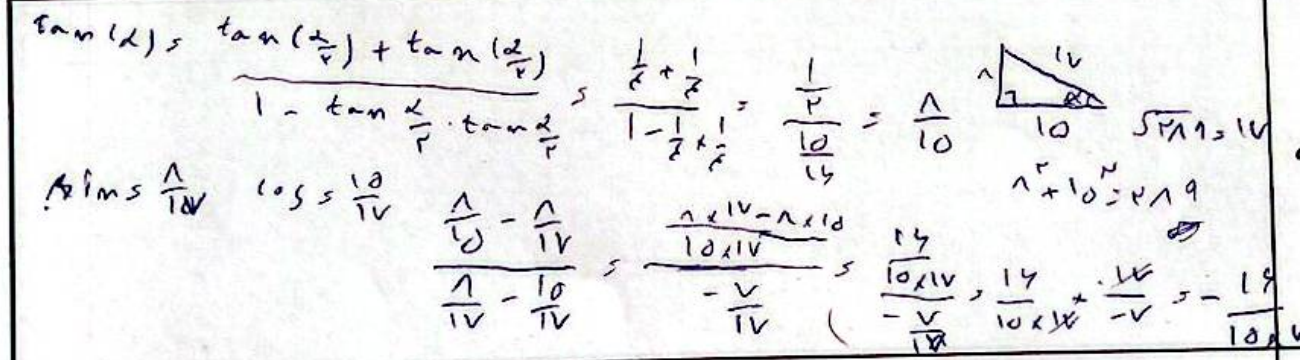 tan(α) = (tan(α/۲) + tan(α/۲)) / (۱ - tan α/۲ · tan α/۲) = (۱/۴ + ۱/۴) / (۱ - ۱/۴ × ۱/۴) = (۱/۲) / (۱۵/۱۶) = ۸/۱۵
۸ ۱۷ α ۱۵ √۲۸۹ = ۱۷
۸^۲ + ۱۵^۲ = ۲۸۹
sin = ۸/۱۷ cos = ۱۵/۱۷ (۸/۱۵ - ۸/۱۷) / (۸/۱۷ - ۱۵/۱۷) = ((۸×۱۷ - ۸×۱۵) / (۱۵×۱۷)) / (-۷/۱۷) = (۱۶/(۱۵×۱۷)) / (-۷/۱۷) = ۱۶/(۱۵×۱۷) × ۱۷/-۷ = -۱۶/(۱۵×۷)